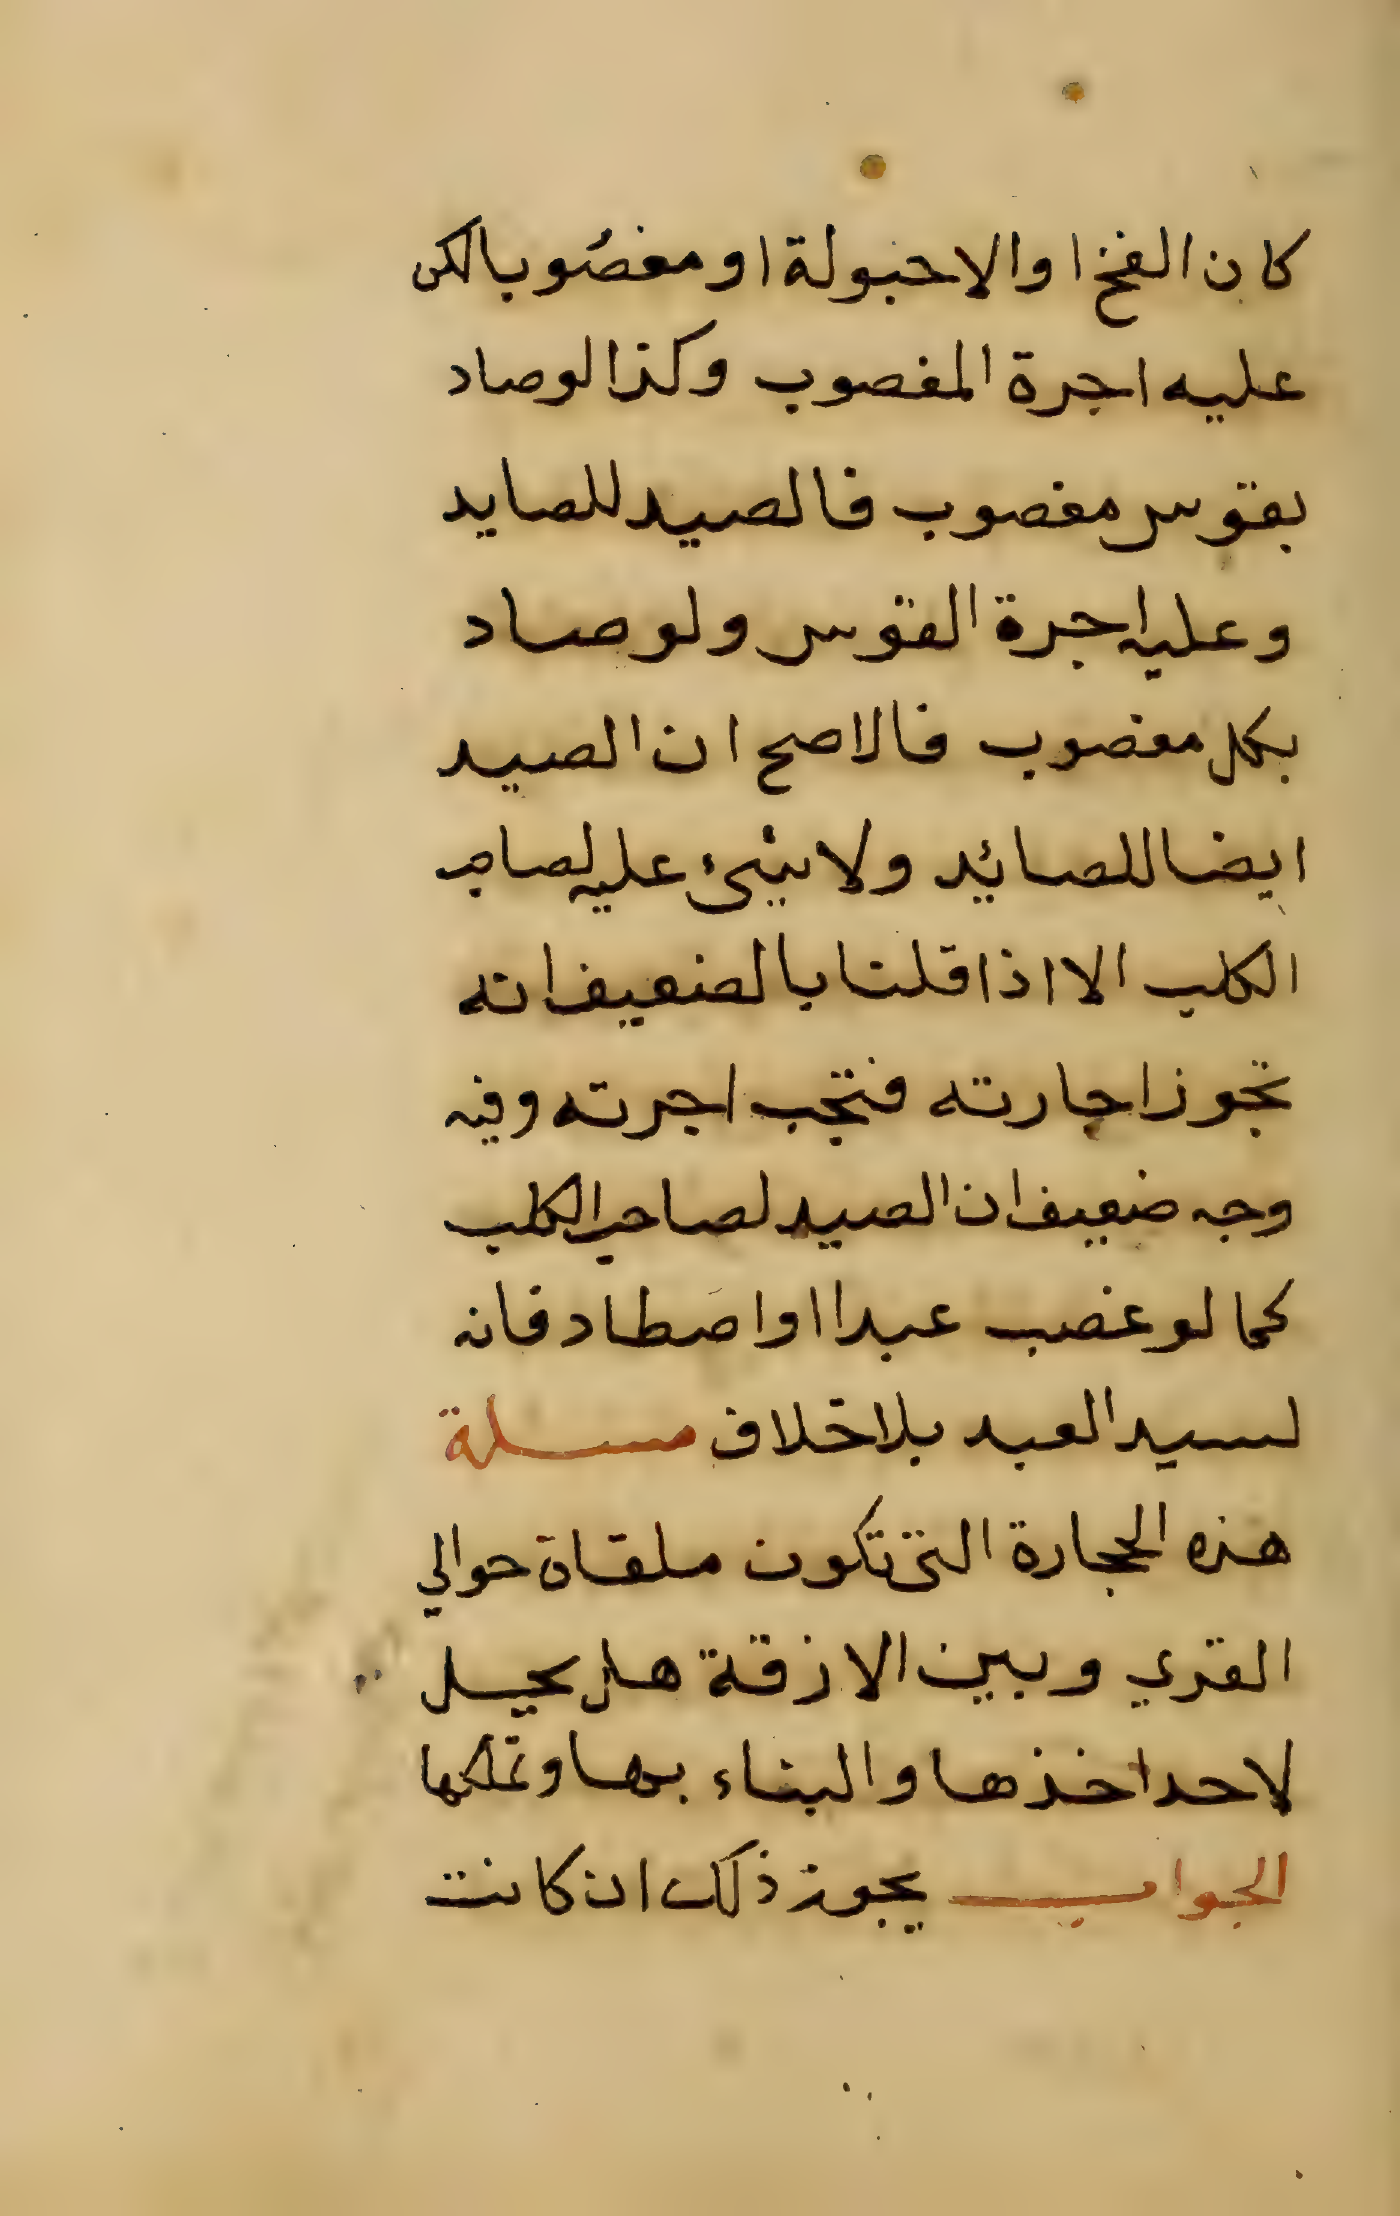 كان الفخ او الاحبولة او مغصُوبا لكن
عليه اجرة المغصوب وكذا لو صاد
بقوس مغصوب فالصيد للصايد
وعليه اجرة القوس ولو صاد
بكلب مغصوب فالاصح ان الصيد
ايضا للصائد ولا شئ عليه لصاحب
الكلب الا اذا قلنا بالضعيف انه
تجوز اجارته فتجب اجرته وفيه
وجه ضعيف ان الصيد لصاحب الكلب
كما لو غصب عبدا او اصطاد فانه
لسيد العبد بلا خلاف مسلة
هذه الحجارة التى تكون ملقاة حوالي
القري وبين الازقة هل يحل
لاحد اخذها والبناء بها وتملكها
الجواب يجوز ذلك ان كانت